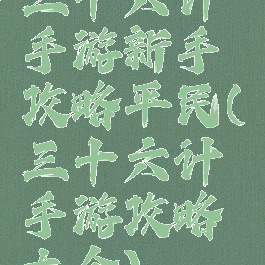 三十六计
手游新手
攻略平民(
三十六计
手游攻略
大全)